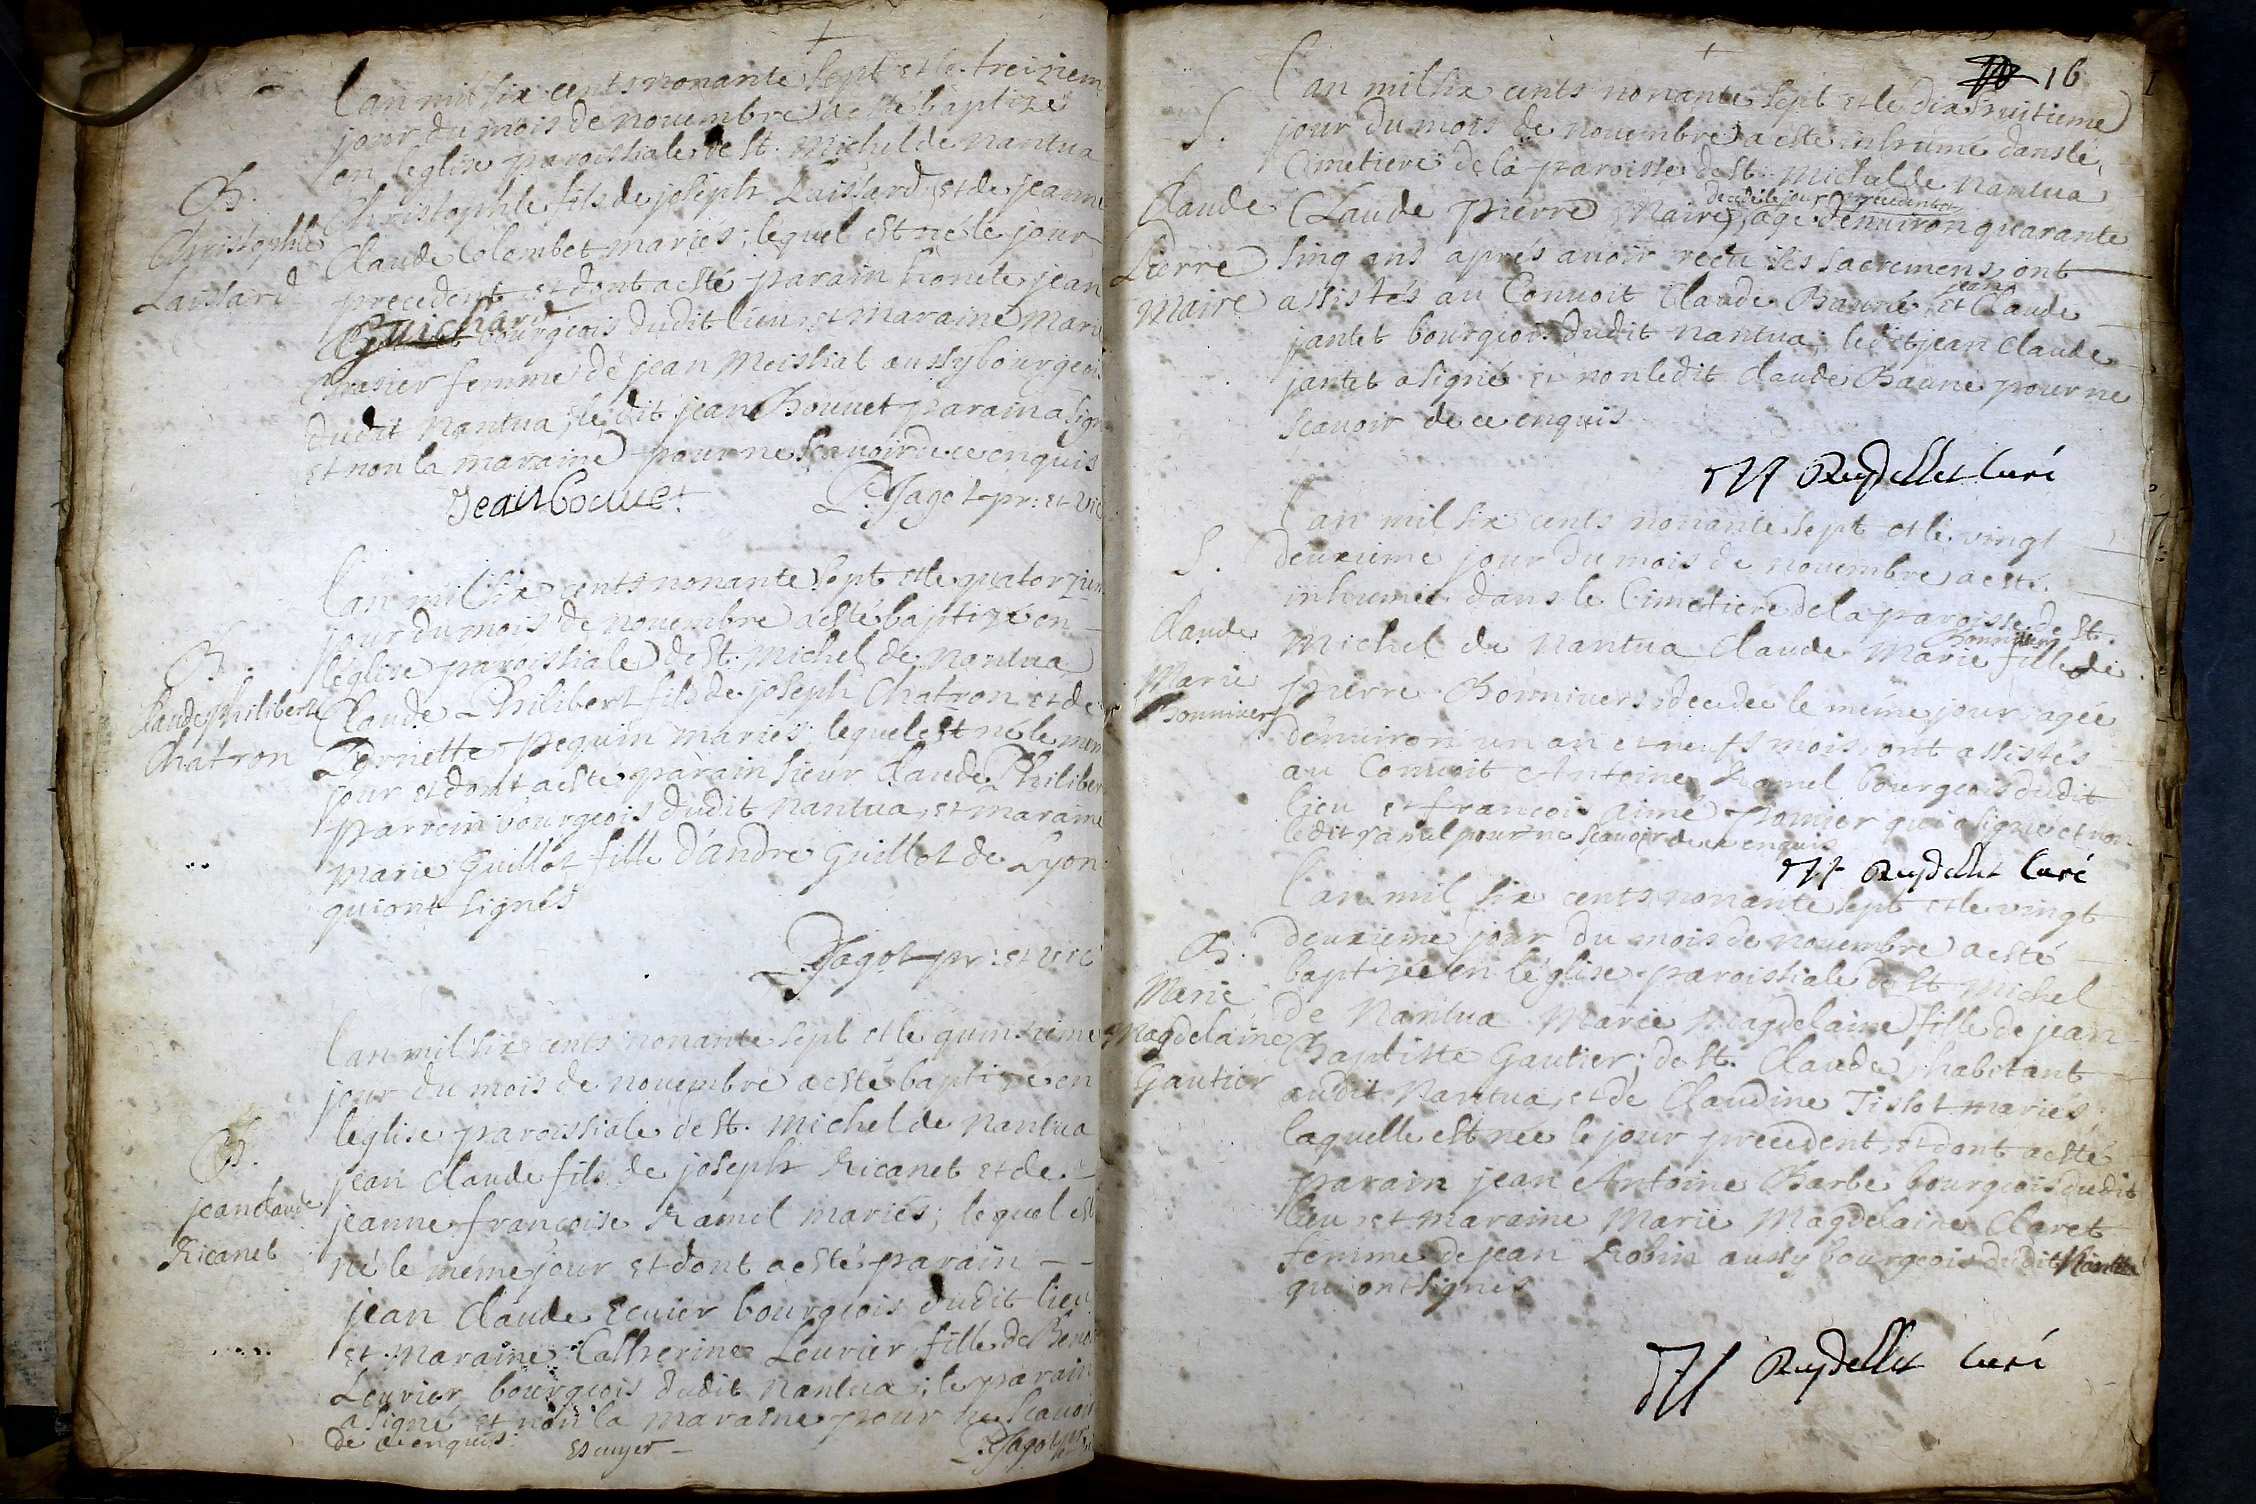 L'an mil six cents nonante sept et le treiziem
jour du mois de novembre a esté baptizé
en l'eglise paroissiale de St. Michel de Nantua
B.
Christophle
Laissard
Christophle fils de joseph Laissard et de jeanne
Claude Colombet mariés; lequel est né le jour
precedent et dont a esté parain honete jean
bourgeois dudit lieu et maraine Marie
femme de jean Moissiat aussy bourgeois
dudit Nantua; le dit jean Bouvet parain a signé
et non la maraine pour ne scavoir de ce enquis
Jean Bouvet P. Jagot pr: et vic
L'an mil six cents nonante sept et le quatorzien
jour du mois de novembre a esté baptizé en
l'eglise paroissiale de St. Michel de Nantua
B.
Claude Philibert
Chatron
Claude Philibert fils de joseph Chatron et de
Pernette Peguin mariés; lequel est né le mem
jour et dont a esté parain sieur Claude Philiber
bourgeois dudit Nantua, et maraine
Marie Guillot fille d'andre Guillot de Lyon
qui ont signés
P. Jagot pr: et vic
L'an mil six cents nonante sept et le quinzieme
jour du mois de novembre a esté baptize en
l'eglise paroissiale de St. Michel de Nantua
B.
jean Claude
Ricanet
jean Claude fils de joseph Ricanet et de
jeanne françoise Ramel mariés; lequel est
né le méme jour et dont a esté parain - -
jean Claude Ecuier bourgeois dudit lieu
et maraine Catherine Leuvier fille de Benoi
Leuvier bourgeois dudit Nantua; le parain
a signé et non la maraine pour ne scavoir
de ce enquis Escuyer P. Jagot pr:
16
L'an mil six cents nonante sept et le dix huitieme
jour du mois de novembre a esté inhumé dans le
Cimetiere de la paroisse de St. Michel de Nantua
S.
Claude
Pierre
Maire
decedé le jour precedent
Claude Pierre Maire, agé d'environ quarante
sinq ans aprés avoir receu ses sacremens, ont
assistés au Convoit Claude Baune et jean Claude
jantet bourgeois dudit Nantua; ledit jean Claude
jantet a signé et non ledit Claude Baune pour ne
scavoir de ce enquis
Reydellet Curé
L'an mil six cents nonante sept et le vingt
deuxieme jour du mois de novembre a esté
inhumée dans le Cimetiere de la paroisse de St.
S.
Claude
Marie
Bonnivers
Bonnivers
Michel de Nantua Claude Marie fille de
pierre Bonnivers decedée le méme jour, agée
d'environ un an et neufs mois, ont assistés
au Convoit Antoine Ramel bourgeois dudit
lieu et françois aimé ponier qui a signé et non
ledit ramel pour ne scavoir de ce enquis
Reydellet Curé
L'an mil six cents nonante sept et le vingt
deuxieme jour du mois de novembre a esté
baptizée en l'église paroissiale de St Michel
B.
Marie
Magdelaine
Gautier
de Nantua Marie Magdelaine fille de jean
Baptiste Gautier; de St. Claude habitant
audit Nantua, et de Claudine Tissot mariés
laquelle est née le jour precedent, et dont a esté
parain jean Antoine Barbe bourgeois dudit
lieu et maraine Marie Magdelaine Claret
femme de jean Robin aussy bourgeois dudit Nantua
qui ont signés
Reydellet Curé